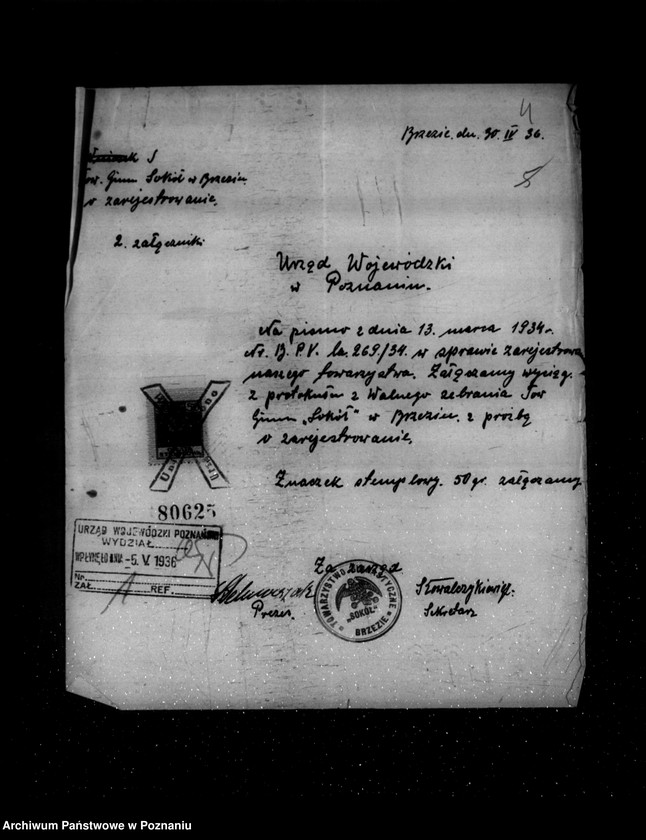 4
Brzezie. dn. 30. IV 36.
Tow. Gimn Sokół w Brzeziu
o zarejestrowanie.
2. załączniki
Urząd Wojewódzki
w Poznaniu.
Na pismo z dnia 13. marca 1934r.
Nr. B. P. V. la. 269/34. w sprawie zarejestrowa
naszego towarzystwa. Załączamy wyciąg.
z protokułu z Walnego zebrania Tow
Gimn „Sokół" w Brzeziu. z prośbą
o zarejestrowanie.
Znaczek stemplowy. 50 gr. załączamy
80625
URZĄD WOJEWÓDZKI POZNAŃSKI
WYDZIAŁ
WPŁYNĘŁO DNIA -5. V. 1936
Nr.
ZAŁ. REF.
Za zarząd
Prezes.
TOWARZYSTWO GIMNASTYCZNE
„SOKÓŁ"
BRZEZIE
Sekretarz
Archiwum Państwowe w Poznaniu